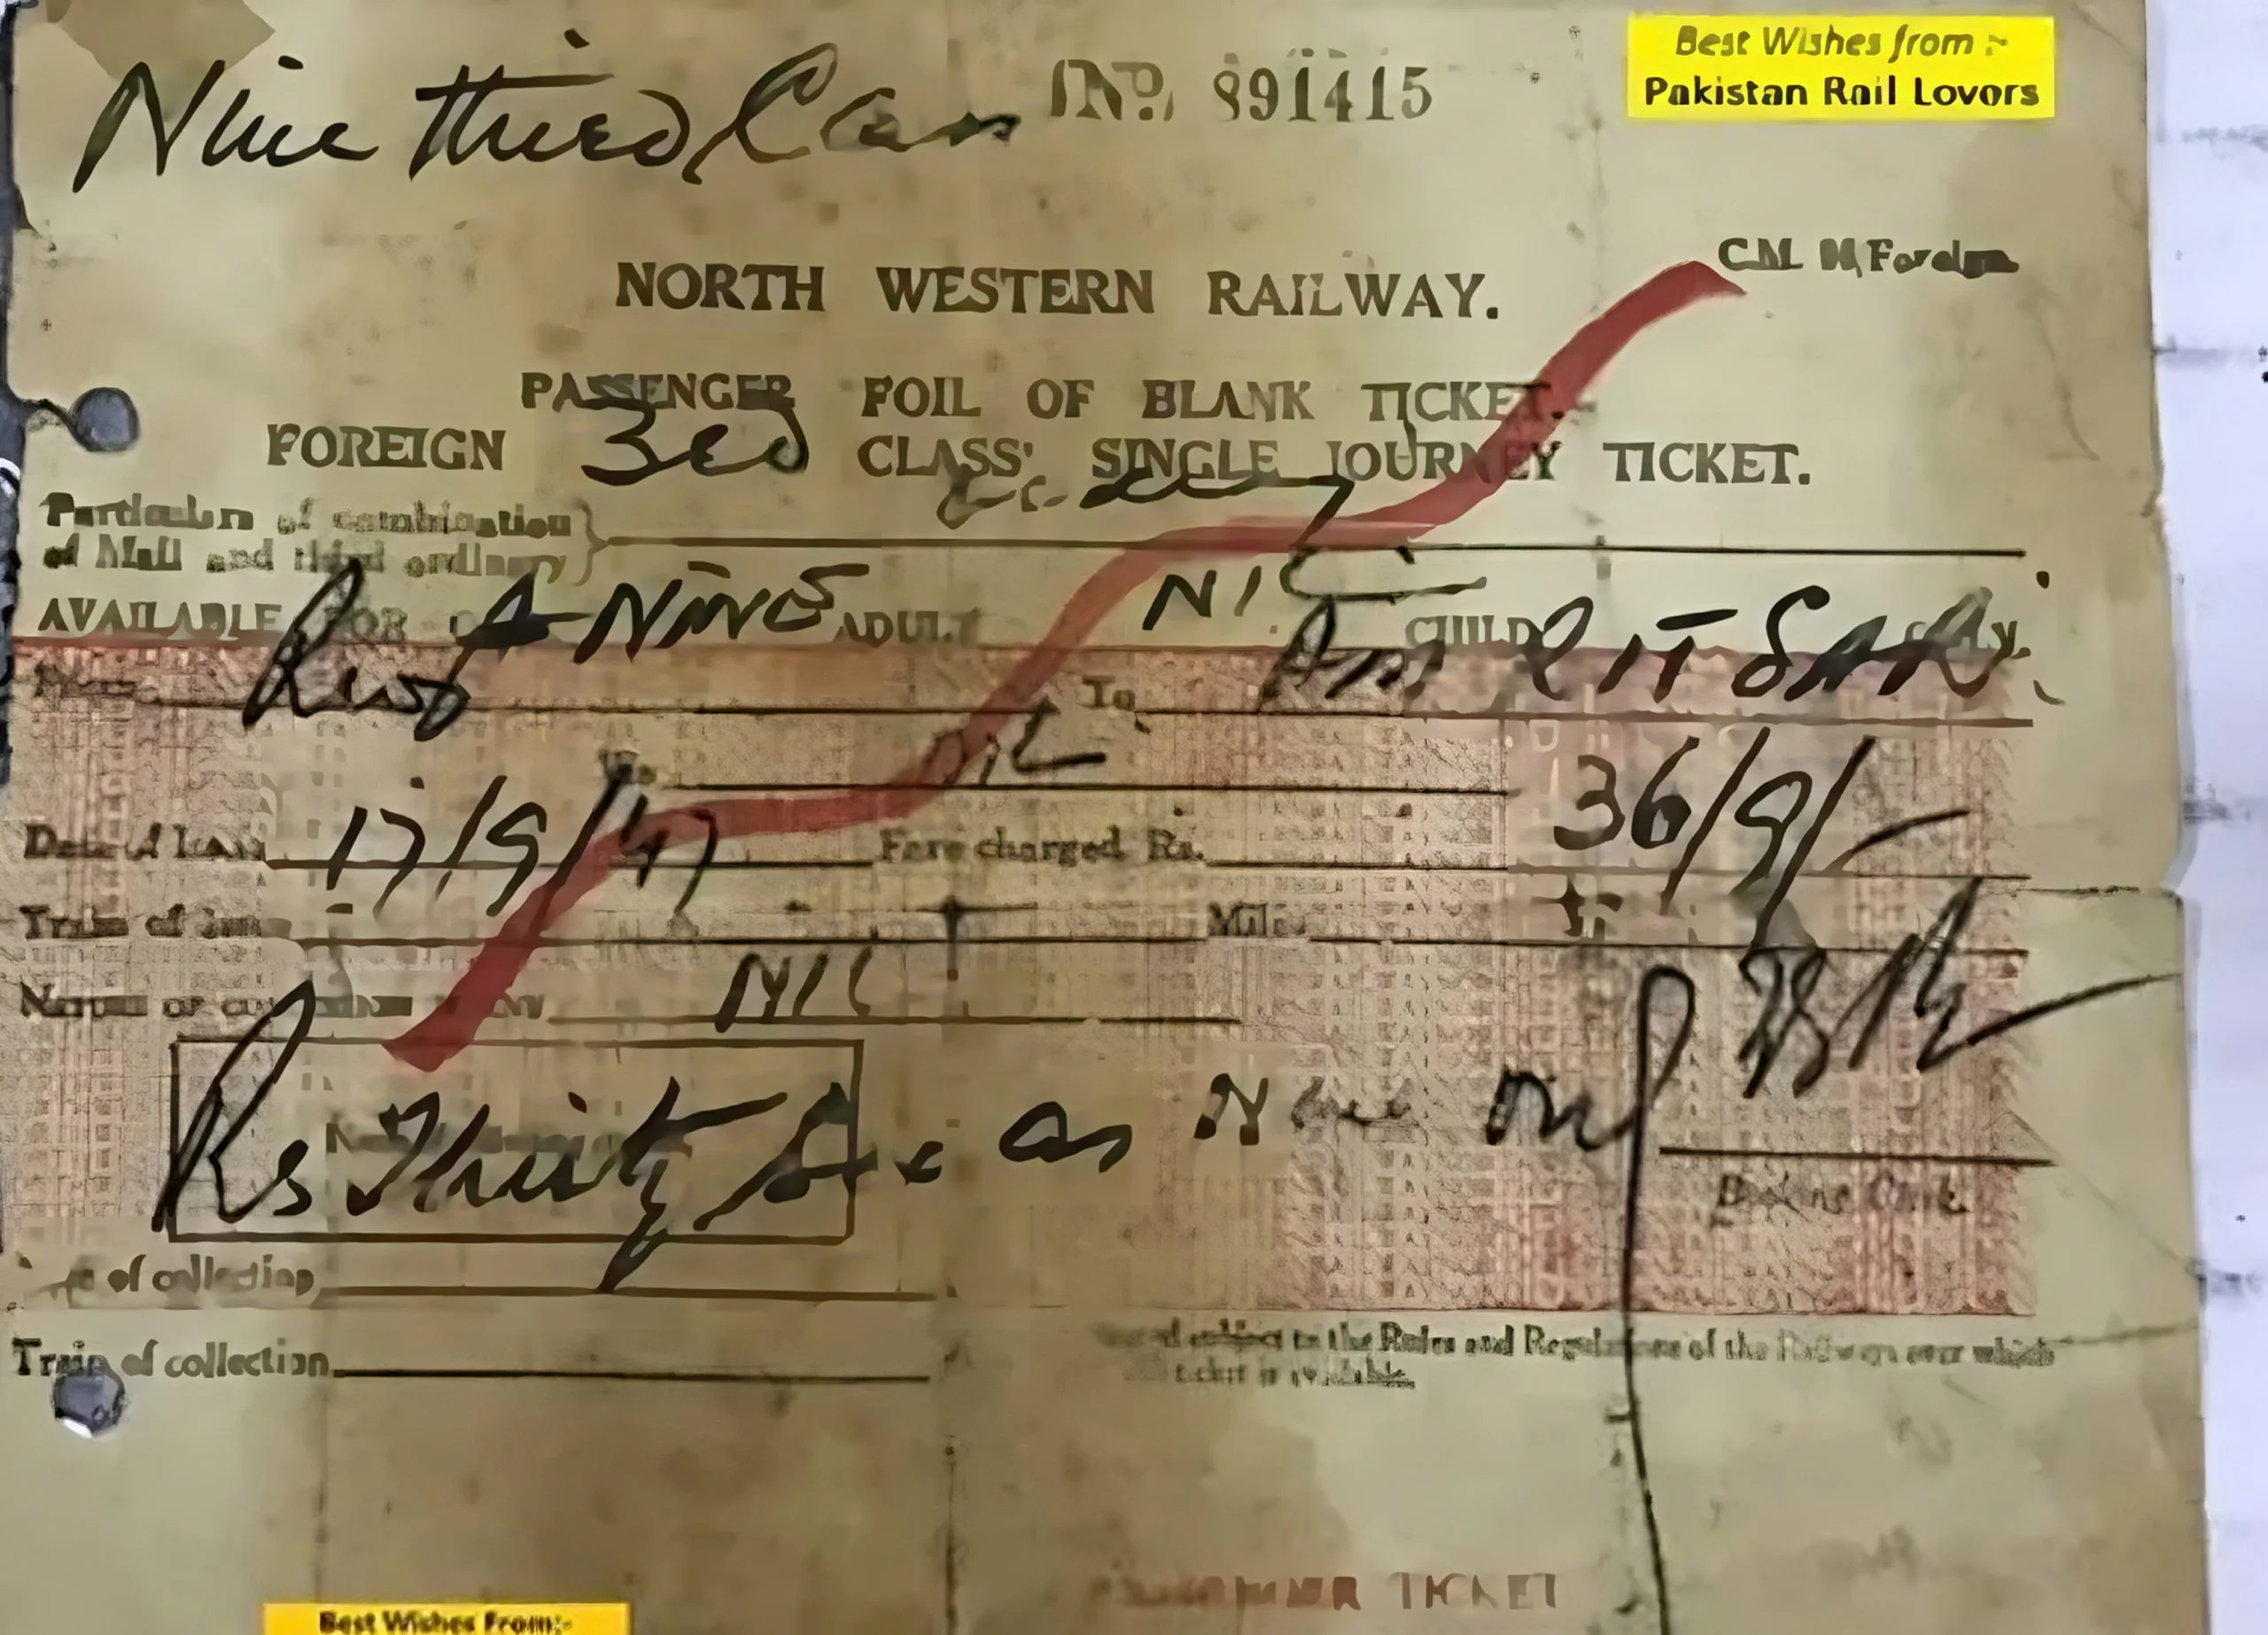 Nine third
No. 891415
Best Wishes from :-
Pakistan Rail Lovors
NORTH WESTERN RAILWAY.
PASSENGER FOIL OF BLANK TICKET.
FOREIGN 3rd CLASS SINGLE JOURNEY TICKET.
Particulars of combination
of Mail and third ordinary
AVAILABLE FOR NINE ADULT NIL CHILD
To AMRITSAR
NIL
17/9/47 Fare charged Rs. 36/9/-
Train of
Name of NIL
Rs Thirty Six as Nine only
of collection
Train of collection
subject to the Rules and Regulations of the Railways over which
ticket is available.
TICKET
Best Wishes From:-